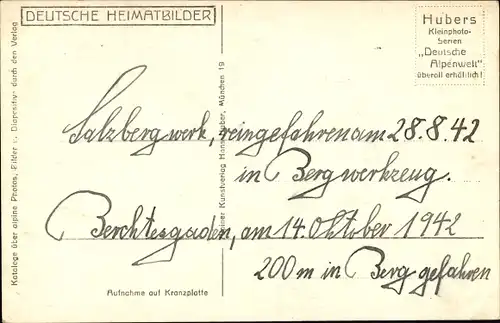 DEUTSCHE HEIMATBILDER
Hubers
Kleinphoto-
Serien
„Deutsche
Alpenwelt"
überall erhältlich!
Kataloge über alpine Photos, Bilder u. Diapositive durch den Verlag
Kunstverlag Hans Huber, München 19
Salzbergwerk, reingefahren am 28.8.42
in Bergwerkzeug.
Berchtesgaden, am 14. Oktober 1942
200 m in Berg gefahren
Aufnahme auf Kranzplatte